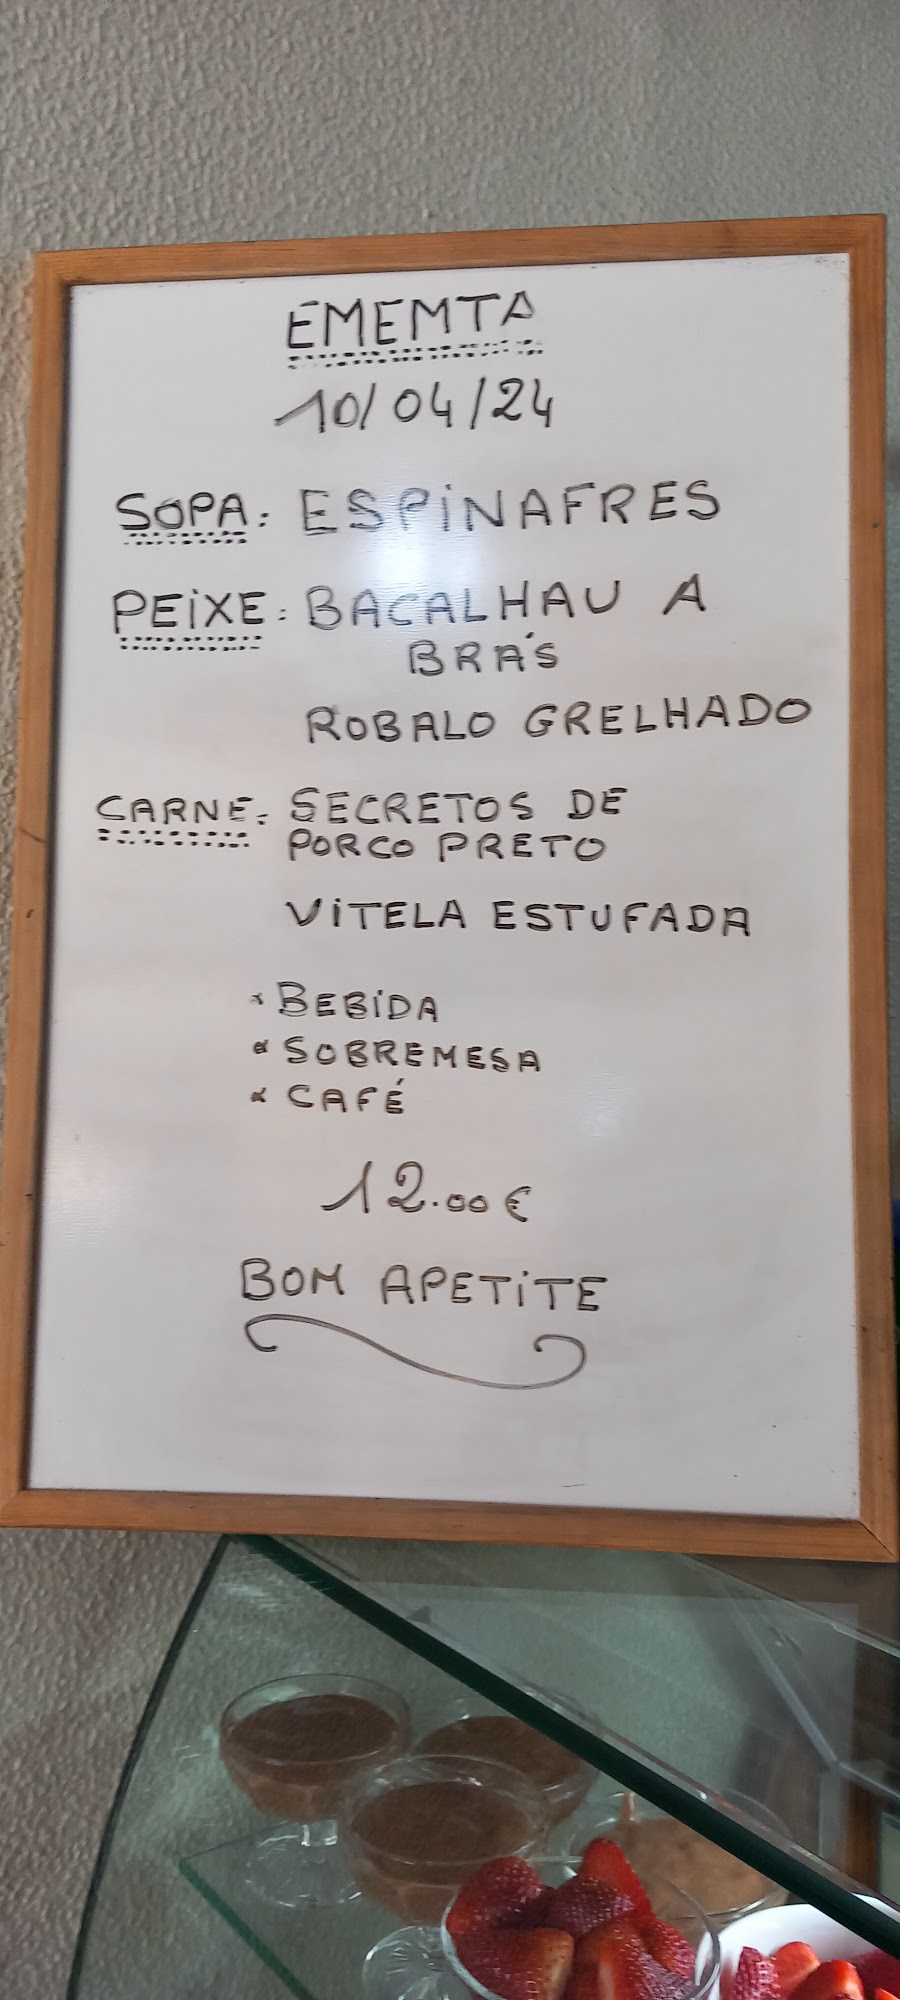 EMEMTA
10/04/24
SOPA: ESPINAFRES
PEIXE: BACALHAU A
BRÁS
ROBALO GRELHADO
CARNE: SECRETOS DE
PORCO PRETO
VITELA ESTUFADA
* BEBIDA
* SOBREMESA
* CAFÉ
12.00€
BOM APETITE